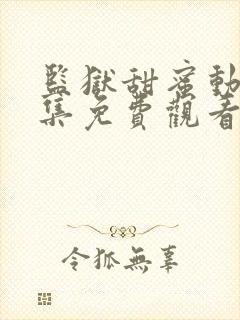 監獄甜蜜動
集免費觀看
令狐無辜